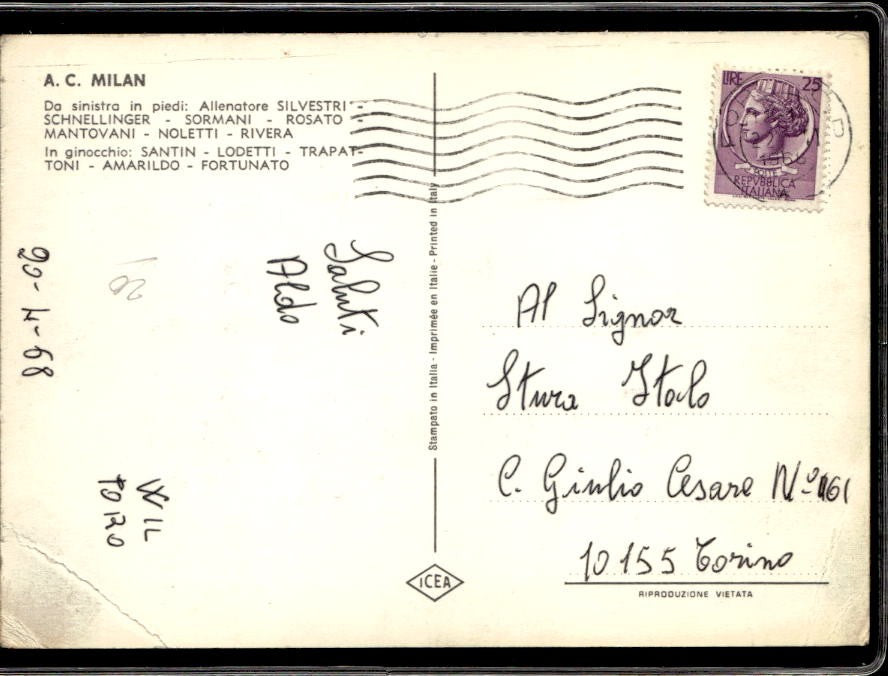 A. C. MILAN
Da sinistra in piedi: Allenatore SILVESTRI -
SCHNELLINGER - SORMANI - ROSATO -
MANTOVANI - NOLETTI - RIVERA
In ginocchio: SANTIN - LODETTI - TRAPAT-
TONI - AMARILDO - FORTUNATO
LIRE 25
POSTE
REPVBBLICA
ITALIANA
Saluti
Aldo
20-4-68
W IL
TORO
Stampato in Italia - Imprimée en Italie - Printed in Italy
Al Signor
Stura Italo
C. Giulio Cesare Nº 161
10155 Torino
ICEA
RIPRODUZIONE VIETATA